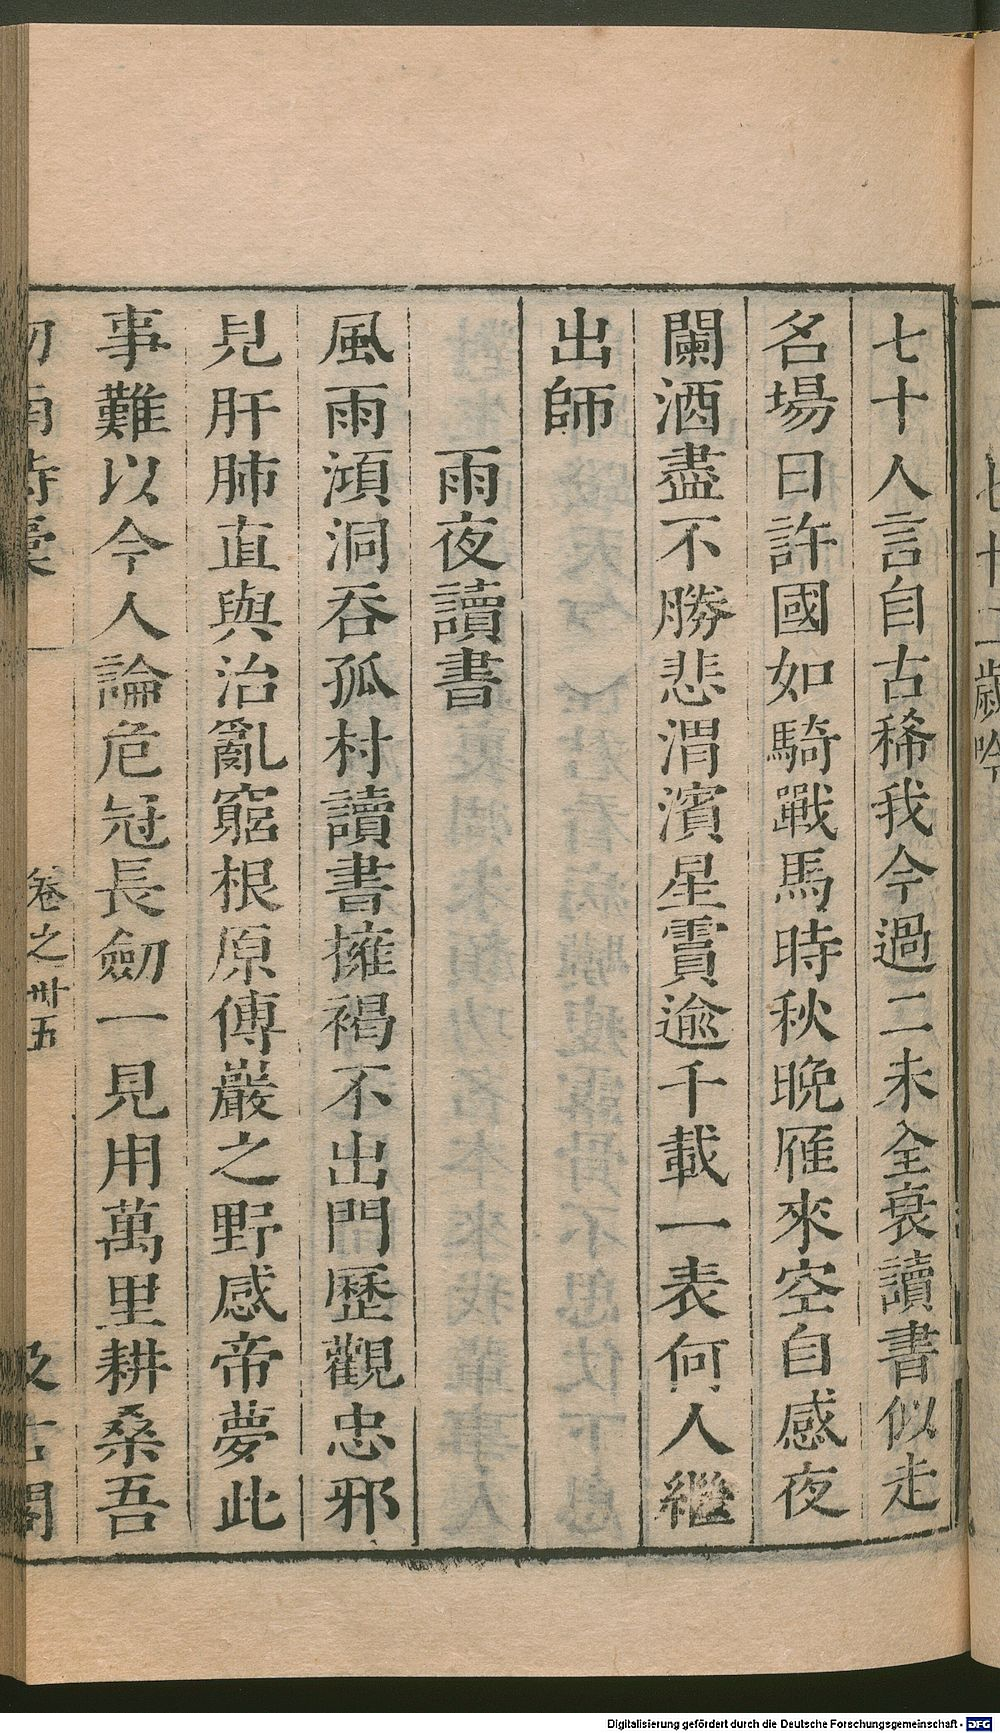 七十二歲吟
七十人言自古稀我今過二未全衰讀書似走
名場日許國如騎戰馬時秋晚雁來空自感夜
闌酒盡不勝悲渭濱星霣逾千載一表何人繼
出師
雨夜讀書
風雨澒洞吞孤村讀書擁褐不出門歷觀忠邪
見肝肺直與治亂窮根原傅巖之野感帝夢此
事難以今人論危冠長劒一見用萬里耕桑吾
卷之卅五
Digitalisierung gefördert durch die Deutsche Forschungsgemeinschaft - DFG